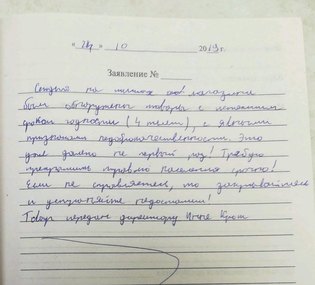 « 24 » 10 2019 г.
Заявление №
Сегодня на полках магазина
были обнаружены товары с истекшим
сроком годности (4 тели), с явными
признаками недоброкачественности. Это
уже далеко не первый раз! Требую
прекратить травлю населения срочно!
Если не справляетесь, то закрывайтесь
и устраняйте недостатки!
Товар передан директору Инне Крот